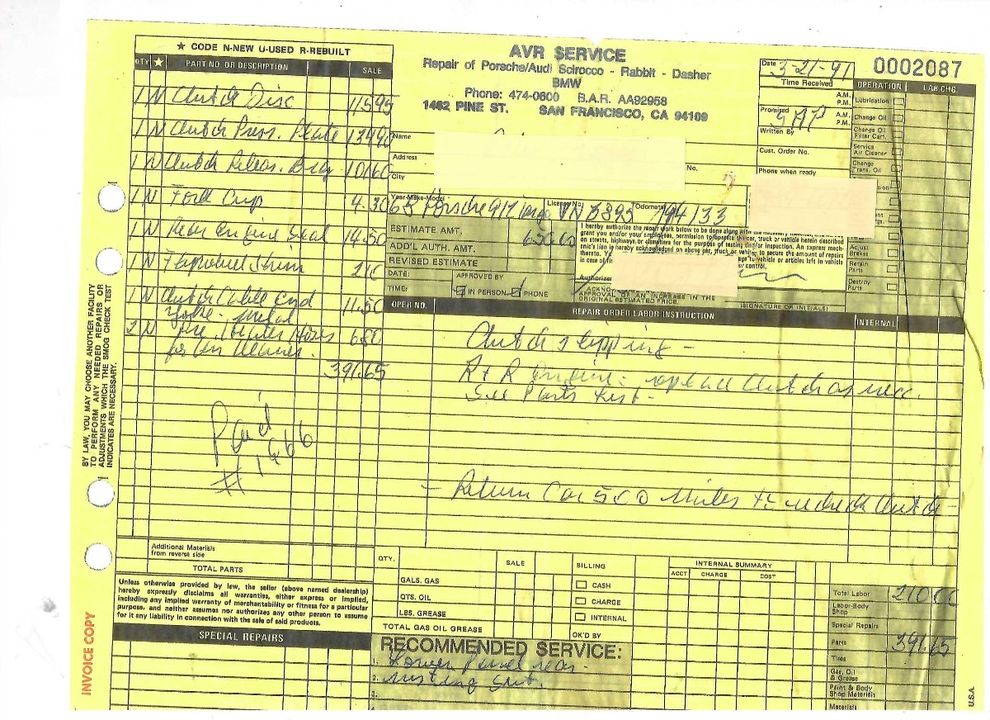 ★ CODE N-NEW U-USED R-REBUILT
QTY ★ PART NO. OR DESCRIPTION SALE
1 N Clutch Disc 115 95
1 N Clutch Press. Plate 139 90
1 N Clutch Releas. Brg 101 60
1 N Fork Cup 4.30
1 N Rear Engine Seal 14.50
1 N Flywheel Shim 2 10
1 N Clutch Cable End 11.50
2 N 6 50
for Air Cleaner.
391.65
Paid
#1466
Additional Materials
from reverse side
TOTAL PARTS
Unless otherwise provided by law, the seller (above named dealership)
hereby expressly disclaims all warranties, either express or implied,
including any implied warranty of merchantability or fitness for a particular
purpose, and neither assumes nor authorizes any other person to assume
for it any liability in connection with the sale of said products.
SPECIAL REPAIRS
BY LAW, YOU MAY CHOOSE ANOTHER FACILITY
TO PERFORM ANY NEEDED REPAIRS OR
ADJUSTMENTS WHICH THE SMOG CHECK TEST
INDICATES ARE NECESSARY.
INVOICE COPY
AVR SERVICE
Repair of Porsche/Audi Scirocco - Rabbit - Dasher
BMW
Phone: 474-0600 B.A.R. AA92958
1462 PINE ST. SAN FRANCISCO, CA 94109
Date 3-21-91
0002087
Time Received A.M. P.M.
Promised A.M. P.M.
Written By
Cust. Order No.
Phone when ready
OPERATION LAB CHG.
Lubrication
Change Oil
Change Oil Filter Cart.
Service Air Cleaner
Change Trans. Oil
Adjust Brakes
Repair Parts
Destroy Parts
Name
Address
No.
City
Year-Make-Model License No. Odometer
Porsche 912
ESTIMATE AMT. 650.00
ADD'L AUTH. AMT.
REVISED ESTIMATE
DATE: APPROVED BY
TIME: IN PERSON PHONE
I hereby authorize the repair work below to be done along with the necessary
grant you and/or your employees, permission to operate the car, truck or vehicle herein described
on streets, highways or elsewhere for the purpose of testing and/or inspection. An express mech-
anic's lien is hereby acknowledged on above car, truck or vehicle to secure the amount of repairs
APPROVAL OF AN INCREASE IN THE
ORIGINAL ESTIMATED PRICE.
(SIGNATURE OR INITIALS)
OPER NO. REPAIR ORDER LABOR INSTRUCTION INTERNAL
Clutch slipping -
R + R engine: replace Clutch as nec.
See Parts List -
- Return Car 500 Miles to Clutch -
QTY. SALE
GALS. GAS
QTS. OIL
LBS. GREASE
TOTAL GAS OIL GREASE
BILLING
CASH
CHARGE
INTERNAL
OK'D BY
INTERNAL SUMMARY
ACCT CHARGE COST
Total Labor 210.00
Labor-Body Shop
Special Repairs
Parts 391.65
Tires
Gas, Oil & Grease
Paint & Body Shop Materials
Materials
RECOMMENDED SERVICE:
1. Lower Panel rear
2.
3.
U.S.A.